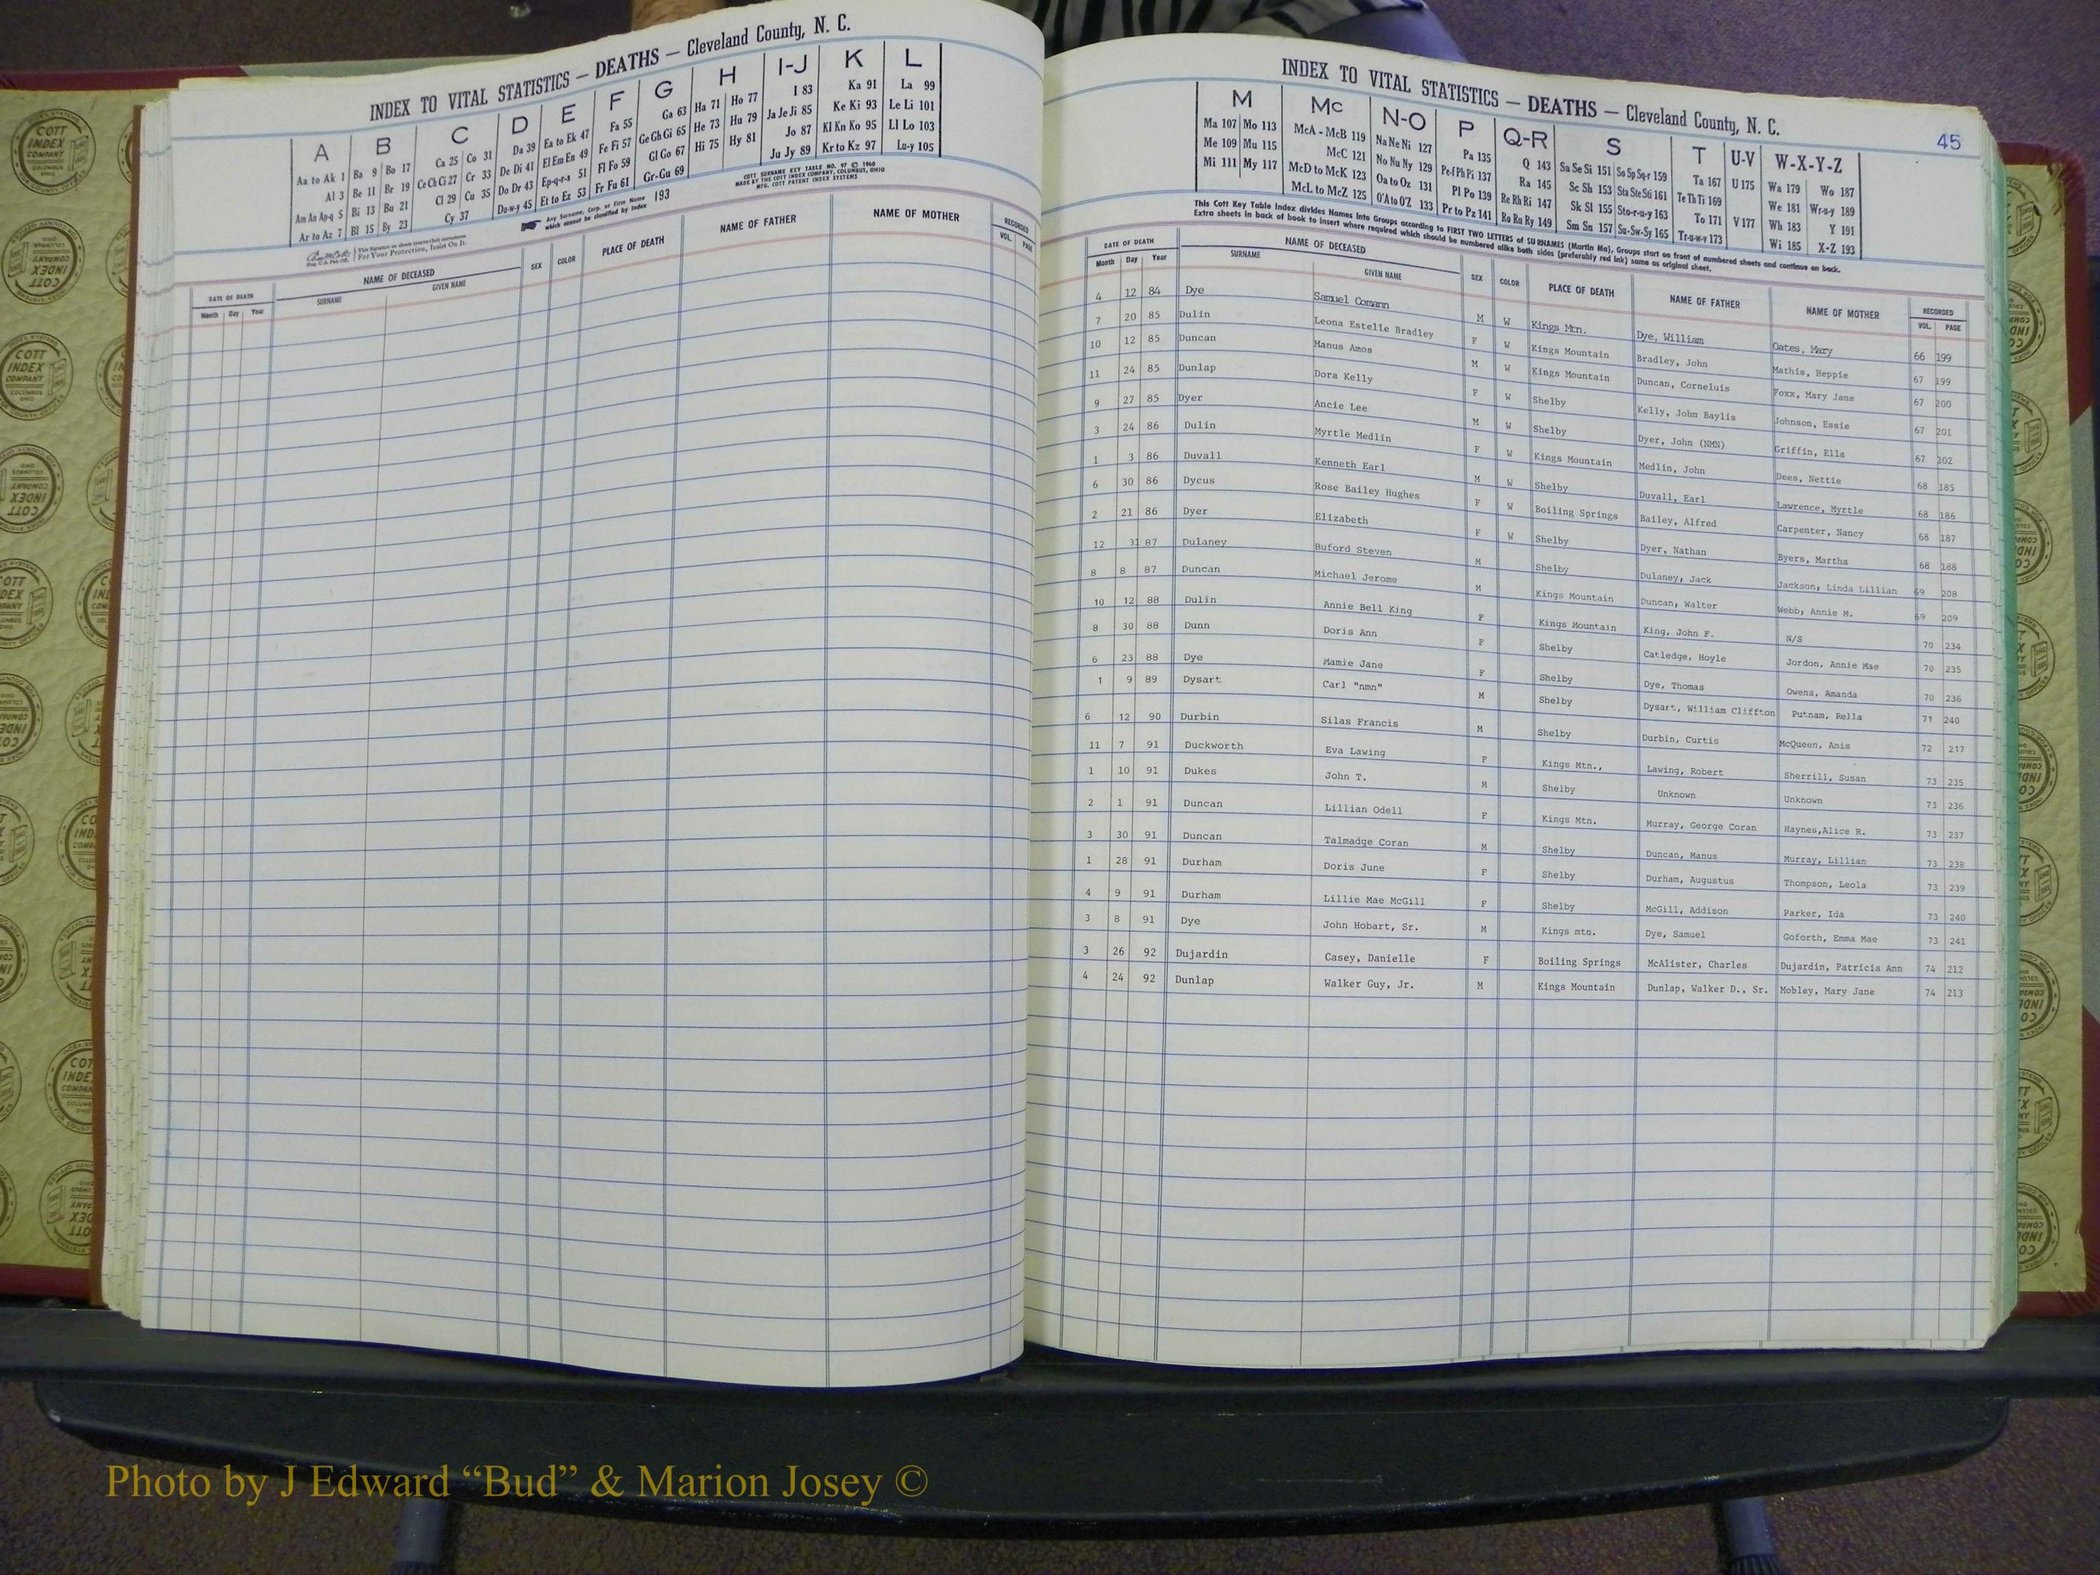 INDEX TO VITAL STATISTICS — DEATHS — Cleveland County, N. C.
A B C D E F G H I-J K L
Aa to Ak 1 Ba 9 Bo 17 Ca 25 Co 31 Da 39 Ea to Ek 47 Fa 55 Ga 63 Ha 71 Ho 77 I 83 Ka 91 La 99
Al 3 Be 11 Br 19 Ce Ch Ci 27 Cr 33 De Di 41 El Em En 49 Fe Fi 57 Ge Gh Gi 65 He 73 Hu 79 Ja Je Ji 85 Ke Ki 93 Le Li 101
Am An Ap-q 5 Bi 13 Bu 21 Cl 29 Cu 35 Do Dr 43 Ep-q-r-s 51 Fl Fo 59 Gl Go 67 Hi 75 Hy 81 Jo 87 Kl Kn Ko 95 Ll Lo 103
Ar to Az 7 Bl 15 By 23 Cy 37 Du-w-y 45 Et to Ez 53 Fr Fu 61 Gr-Gu 69 Ju Jy 89 Kr to Kz 97 Lu-y 105
COTT SURNAME KEY TABLE NO. 97 © 1960
MADE BY THE COTT INDEX COMPANY, COLUMBUS, OHIO
MFG. COTT PATENT INDEX SYSTEMS
Any Surname, Corp. or Firm Name which cannot be classified by Index 193
This Signature on sheets insures their correctness
For Your Protection, Insist On It.
DATE OF DEATH NAME OF DECEASED SEX COLOR PLACE OF DEATH NAME OF FATHER NAME OF MOTHER RECORDED
Month Day Year SURNAME GIVEN NAME VOL. PAGE
INDEX TO VITAL STATISTICS — DEATHS — Cleveland County, N. C.
45
M Mc N-O P Q-R S T U-V W-X-Y-Z
Ma 107 Mo 113 McA - McB 119 Na Ne Ni 127 Pa 135 Q 143 Sa Se Si 151 So Sp Sq-r 159 Ta 167 U 175 Wa 179 Wo 187
Me 109 Mu 115 McC 121 No Nu Ny 129 Pe-f Ph Pi 137 Ra 145 Sc Sh 153 Sta Ste Sti 161 Te Th Ti 169 We 181 Wr-u-y 189
Mi 111 My 117 McD to McK 123 Oa to Oz 131 Pl Po 139 Re Rh Ri 147 Sk Sl 155 Sto-r-u-y 163 To 171 V 177 Wh 183 Y 191
McL to McZ 125 O'A to O'Z 133 Pr to Pz 141 Ro Ru Ry 149 Sm Sn 157 Su-Sw-Sy 165 Tr-u-w-y 173 Wi 185 X-Z 193
This Cott Key Table Index divides Names into Groups according to FIRST TWO LETTERS of SURNAMES (Martin Ma), Groups start on front of numbered sheets and continue on back.
Extra sheets in back of book to insert where required which should be numbered alike both sides (preferably red ink) same as original sheet.
DATE OF DEATH NAME OF DECEASED SEX COLOR PLACE OF DEATH NAME OF FATHER NAME OF MOTHER RECORDED
Month Day Year SURNAME GIVEN NAME VOL. PAGE
4 12 84 Dye Samuel Comann M W Kings Mtn. Dye, William Oates, Mary 66 199
7 20 85 Dulin Leona Estelle Bradley F W Kings Mountain Bradley, John Mathis, Heppie 67 199
10 12 85 Duncan Manus Amos M W Kings Mountain Duncan, Corneluis Foxx, Mary Jane 67 200
11 24 85 Dunlap Dora Kelly F W Shelby Kelly, John Baylis Johnson, Essie 67 201
9 27 85 Dyer Ancie Lee M W Shelby Dyer, John (NMN) Griffin, Ella 67 202
3 24 86 Dulin Myrtle Medlin F W Kings Mountain Medlin, John Dees, Nettie 68 185
1 3 86 Duvall Kenneth Earl M W Shelby Duvall, Earl Lawrence, Myrtle 68 186
6 30 86 Dycus Rose Bailey Hughes F W Boiling Springs Bailey, Alfred Carpenter, Nancy 68 187
2 21 86 Dyer Elizabeth F W Shelby Dyer, Nathan Byers, Martha 68 188
12 31 87 Dulaney Buford Steven M Shelby Dulaney, Jack Jackson, Linda Lillian 69 208
8 8 87 Duncan Michael Jerome M Kings Mountain Duncan, Walter Webb, Annie M. 69 209
10 12 88 Dulin Annie Bell King F Kings Mountain King, John F. N/S 70 234
8 30 88 Dunn Doris Ann F Shelby Catledge, Hoyle Jordon, Annie Mae 70 235
6 23 88 Dye Mamie Jane F Shelby Dye, Thomas Owens, Amanda 70 236
1 9 89 Dysart Carl "nmn" M Shelby Dysart, William Cliffton Putnam, Rella 71 240
6 12 90 Durbin Silas Francis M Shelby Durbin, Curtis McQueen, Anis 72 217
11 7 91 Duckworth Eva Lawing F Kings Mtn., Lawing, Robert Sherrill, Susan 73 235
1 10 91 Dukes John T. M Shelby Unknown Unknown 73 236
2 1 91 Duncan Lillian Odell F Kings Mtn. Murray, George Coran Haynes,Alice R. 73 237
3 30 91 Duncan Talmadge Coran M Shelby Duncan, Manus Murray, Lillian 73 238
1 28 91 Durham Doris June F Shelby Durham, Augustus Thompson, Leola 73 239
4 9 91 Durham Lillie Mae McGill F Shelby McGill, Addison Parker, Ida 73 240
3 8 91 Dye John Hobart, Sr. M Kings mtn. Dye, Samuel Goforth, Emma Mae 73 241
3 26 92 Dujardin Casey, Danielle F Boiling Springs McAlister, Charles Dujardin, Patricia Ann 74 212
4 24 92 Dunlap Walker Guy, Jr. M Kings Mountain Dunlap, Walker D., Sr. Mobley, Mary Jane 74 213
COTT INDEX COMPANY COLUMBUS OHIO
Photo by J Edward “Bud” & Marion Josey ©